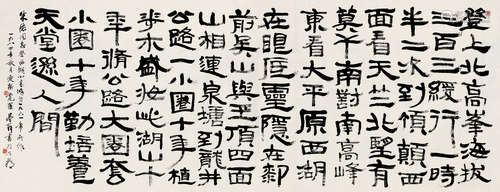 登上北高峯海拔
三百三纔行一時
半二次到傾顛西
面看天竺北望有
莫干南對南高峰
東看大平原西湖
在眼底靈隱在
前吴山與玉頂四
山相連泉塘到龍井
公路小園十年植
木盛如此湖山十
年脩公路大園套
小園十年勤培養
天堂遜人間
朱德同志登西湖北高峰